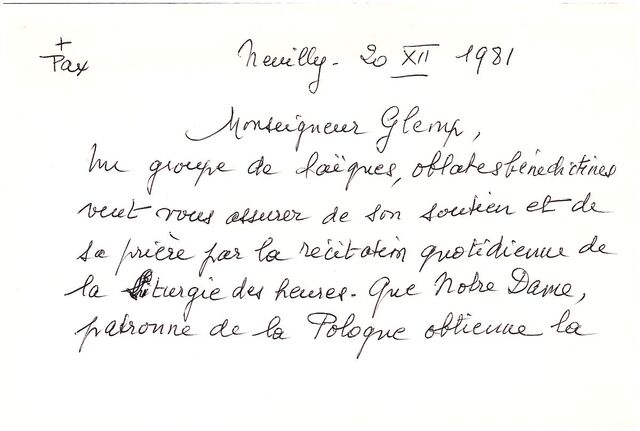 +
Pax
Neuilly - 20 XII 1981
Monseigneur Glemp,
Un groupe de laïques, oblates bénédictines
veut vous assurer de son soutien et de
sa prière par la récitation quotidienne de
la liturgie des heures. Que Notre Dame,
patronne de la Pologne obtienne la